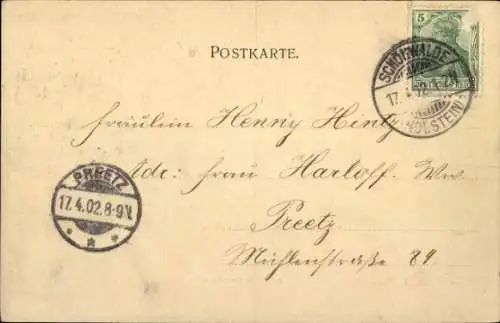 5
POSTKARTE.
SCHÖNWALDE
17.4.02
(HOLSTEIN)
Fräulein Henny Hintz
Adr: Frau Harloff. Ww.
PREETZ
17.4.02.8-9V.
Preetz
Mühlenstraße 84.